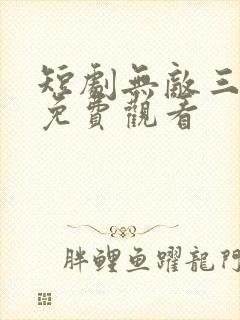 短劇無敵三
免費觀看
胖鯉鱼躍龍門